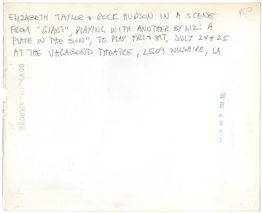 ELIZABETH TAYLOR & ROCK HUDSON IN A SCENE
FROM "GIANT", PLAYING WITH ANOTHER BY LIZ: A
PLACE IN THE SUN", TO PLAY FRI & SAT, JULY 24 & 25
AT THE VAGABOND THEATRE, 2509 WILSHIRE, LA